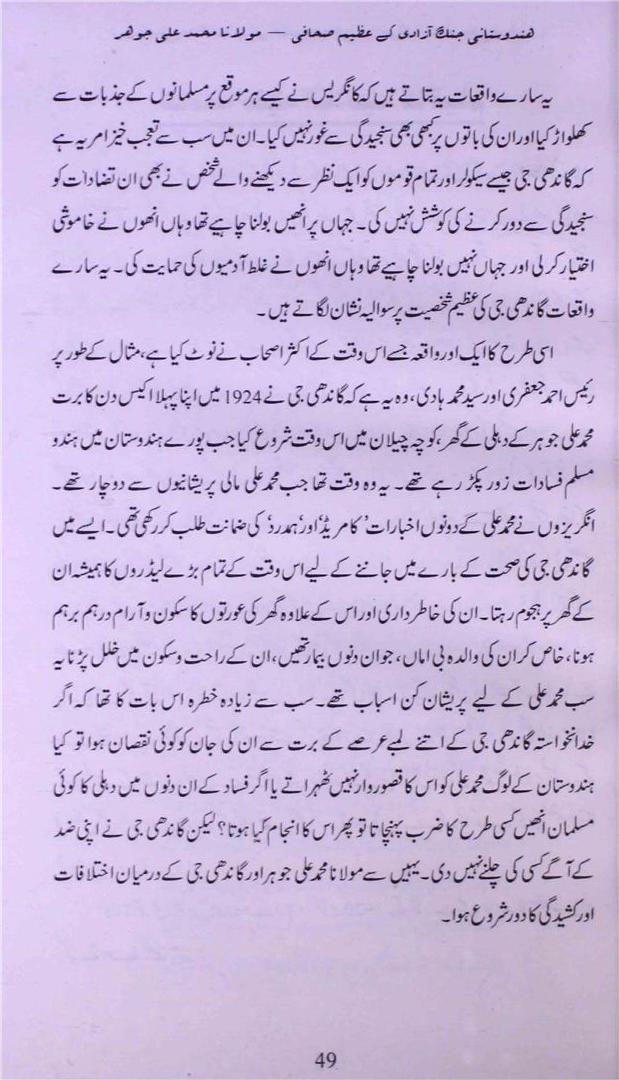 ھندوستانی جنگ آزادی کے عظیم صحافی — مولانا محمد علی جوھر
یہ سارے واقعات یہ بتاتے ہیں کہ کانگریس نے کیسے ہر موقع پر مسلمانوں کے جذبات سے
کھلواڑ کیا اور ان کی باتوں پر کبھی بھی سنجیدگی سے غور نہیں کیا۔ ان میں سب سے تعجب خیز امر یہ ہے
کہ گاندھی جی جیسے سیکولر اور تمام قوموں کو ایک نظر سے دیکھنے والے شخص نے بھی ان تضادات کو
سنجیدگی سے دور کرنے کی کوشش نہیں کی۔ جہاں پر انھیں بولنا چاہیے تھا وہاں انھوں نے خاموشی
اختیار کر لی اور جہاں نہیں بولنا چاہیے تھا وہاں انھوں نے غلط آدمیوں کی حمایت کی۔ یہ سارے
واقعات گاندھی جی کی عظیم شخصیت پر سوالیہ نشان لگاتے ہیں۔
اسی طرح کا ایک اور واقعہ جسے اس وقت کے اکثر اصحاب نے نوٹ کیا ہے، مثال کے طور پر
رئیس احمد جعفری اور سید محمد ہادی، وہ یہ ہے کہ گاندھی جی نے 1924 میں اپنا پہلا اکیس دن کا برت
محمد علی جوہر کے دہلی کے گھر، کوچہ چیلان میں اس وقت شروع کیا جب پورے ہندوستان میں ہندو
مسلم فسادات زور پکڑ رہے تھے۔ یہ وہ وقت تھا جب محمد علی مالی پریشانیوں سے دوچار تھے۔
انگریزوں نے محمد علی کے دونوں اخبارات ’کامریڈ‘ اور ’ہمدرد‘ کی ضمانت طلب کر رکھی تھی۔ ایسے میں
گاندھی جی کی صحت کے بارے میں جاننے کے لیے اس وقت کے تمام بڑے لیڈروں کا ہمیشہ ان
کے گھر پر ہجوم رہتا۔ ان کی خاطر داری اور اس کے علاوہ گھر کی عورتوں کا سکون و آرام درہم برہم
ہونا، خاص کر ان کی والدہ بی اماں، جو ان دنوں بیمار تھیں، ان کے راحت و سکون میں خلل پڑنا یہ
سب محمد علی کے لیے پریشان کن اسباب تھے۔ سب سے زیادہ خطرہ اس بات کا تھا کہ اگر
خدانخواستہ گاندھی جی کے اتنے لمبے عرصے کے برت سے ان کی جان کو کوئی نقصان ہوا تو کیا
ہندوستان کے لوگ محمد علی کو اس کا قصوروار نہیں ٹھہراتے یا اگر فساد کے ان دنوں میں دہلی کا کوئی
مسلمان انھیں کسی طرح کا ضرب پہنچاتا تو پھر اس کا انجام کیا ہوتا؟ لیکن گاندھی جی نے اپنی ضد
کے آگے کسی کی چلنے نہیں دی۔ یہیں سے مولانا محمد علی جوہر اور گاندھی جی کے درمیان اختلافات
اور کشیدگی کا دور شروع ہوا۔
49